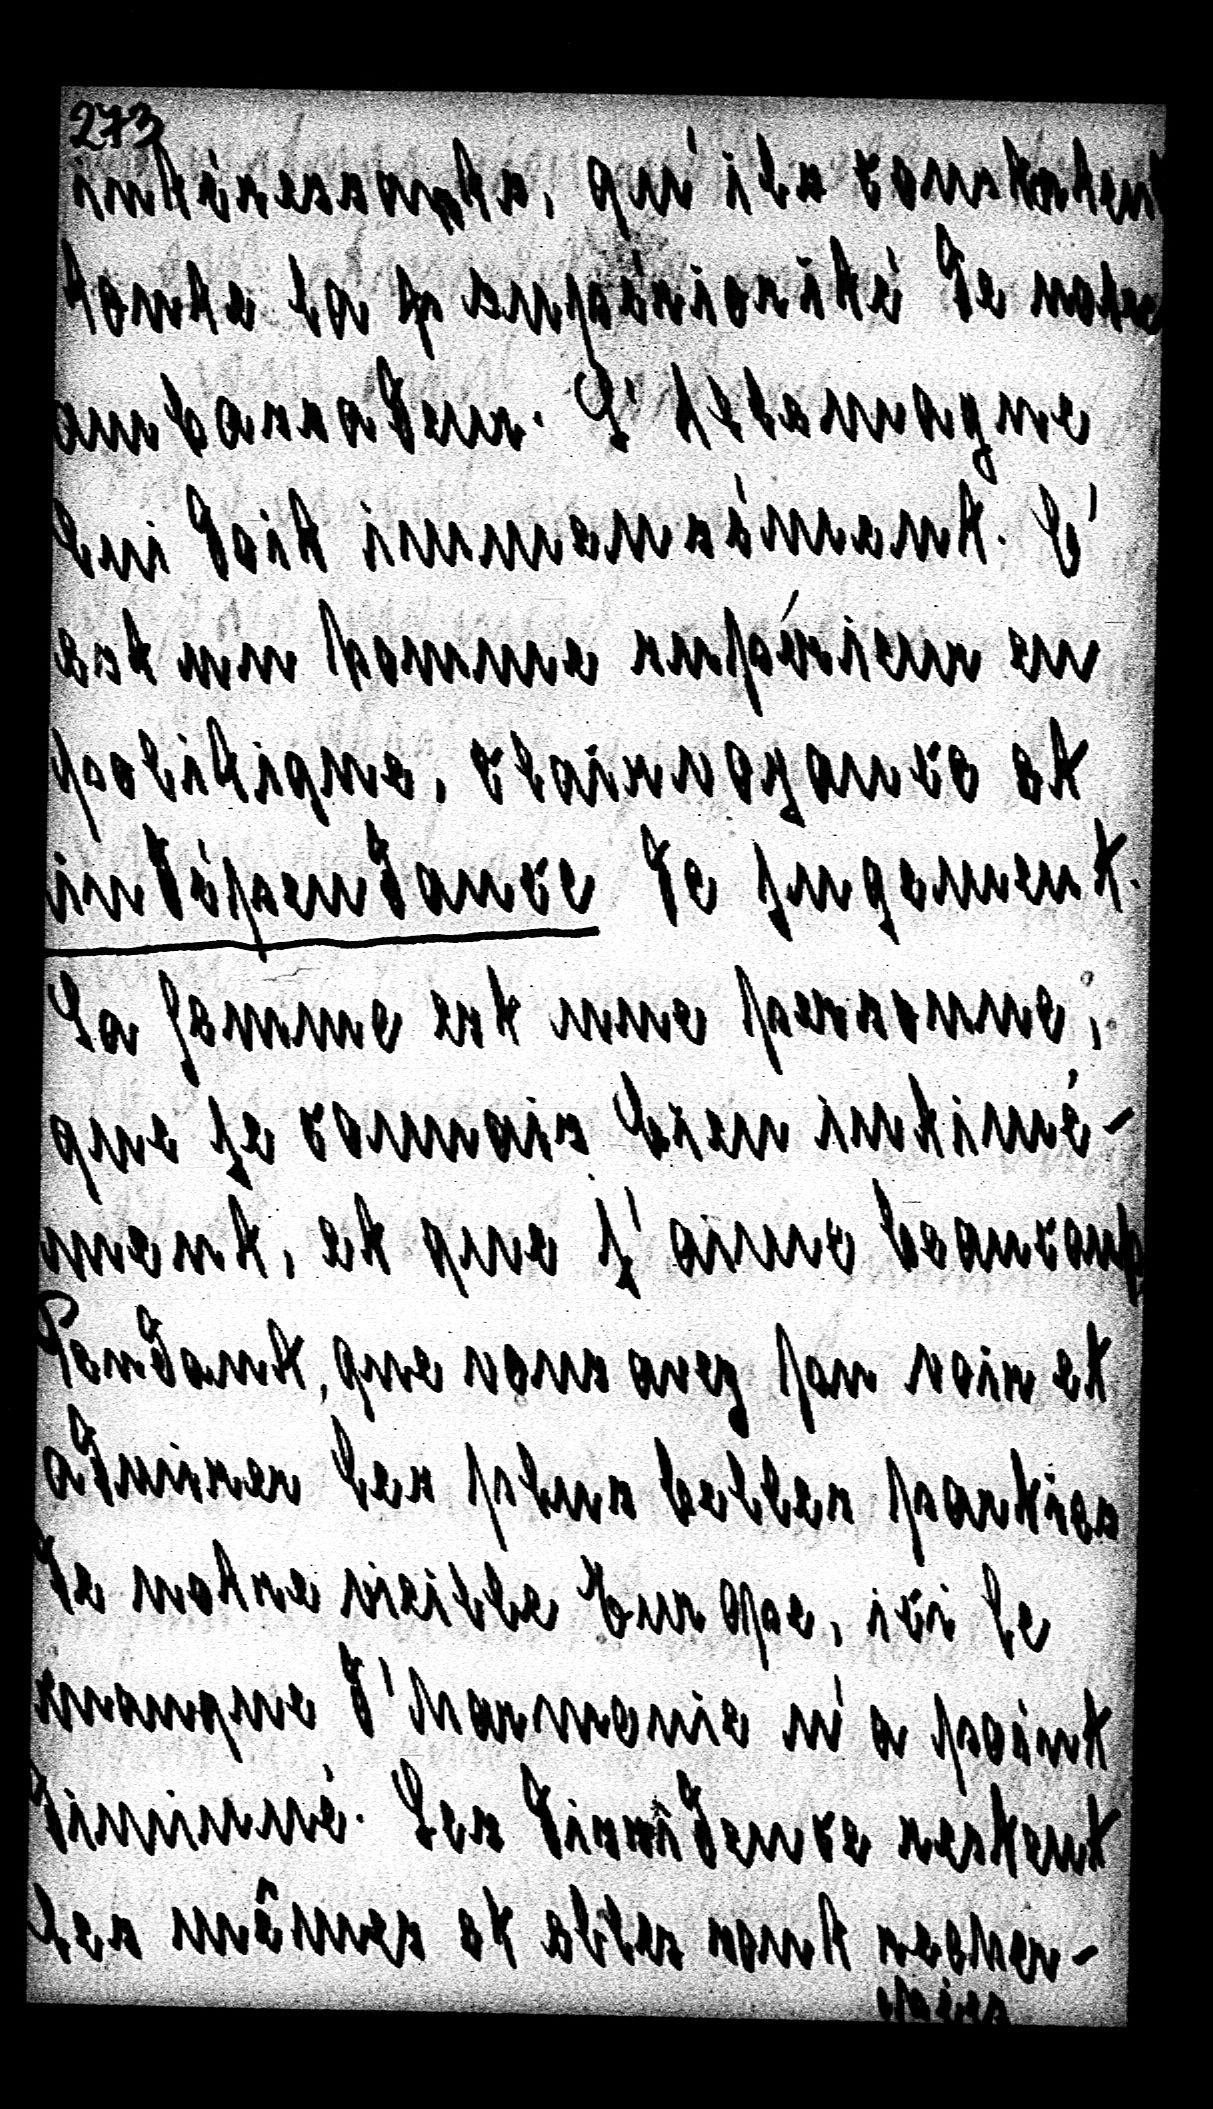 273
intéressants, qu'ils constatent
tonte la p supériorité de notre
ambassadeur. L'Allemagne
lui doit immensément. C'
est un homme supérieur en
politique, clairvoyance et
indépendance de jugement.
La femme est une personne,
que je connais bien intimé-
ment, et que j'aime beaucoup
Pendant, que vous avez pu voir et
admirer les plus belles parties
de notre vieille Europe, ici le
manque d'harmonie n'a point
diminué. Les dissidence restent
les mêmes et elles sont recher-
chées